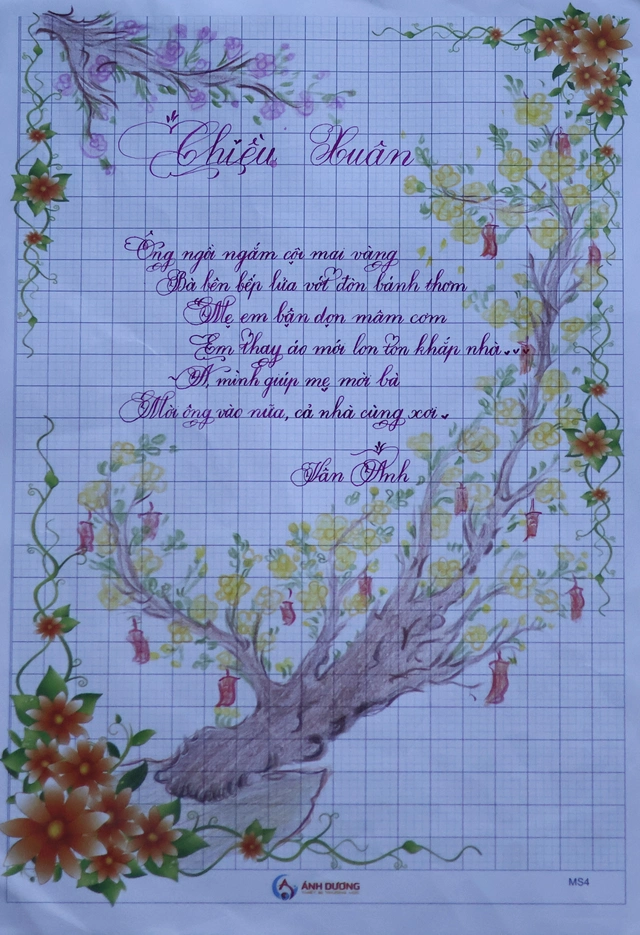 Chiều Xuân
Ông ngồi ngắm cội mai vàng
Bà bên bếp lửa vớt đòn bánh thơm
Mẹ em bận dọn mâm cơm
Em thay áo mới lon ton khắp nhà...
À, mình giúp mẹ mời bà
Mời ông vào nữa, cả nhà cùng xơi.
Vân Anh
ÁNH DƯƠNG
MS4